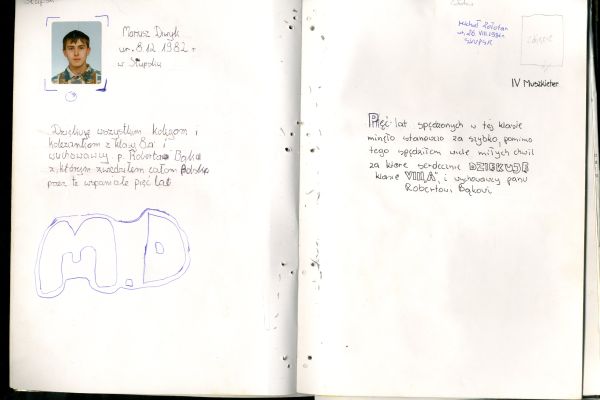 Słupsk
Mariusz Dwyk
ur. 8.12 1982 r
w Słupsku
Dziękuję wszystkim kolegom i
koleżankom z klasy 8a i
wychowawcy p. Robertowi Bąku
z którym zwiedziłem całom Polskę
przez te wspaniałe pięć lat
M.D
Michał Żołotar
ur. 26 VIII.1982r.
SŁUPSK
ZDJĘCIE
IV Muszkieter
Pięć lat spędzonych w tej klasie
minęło stanowczo za szybko, pomimo
tego spędziłem wiele miłych chwil
za które serdecznie DZIĘKUJĘ
klasie VIII„A” i wychowawcy panu
Robertowi Bąkowi.